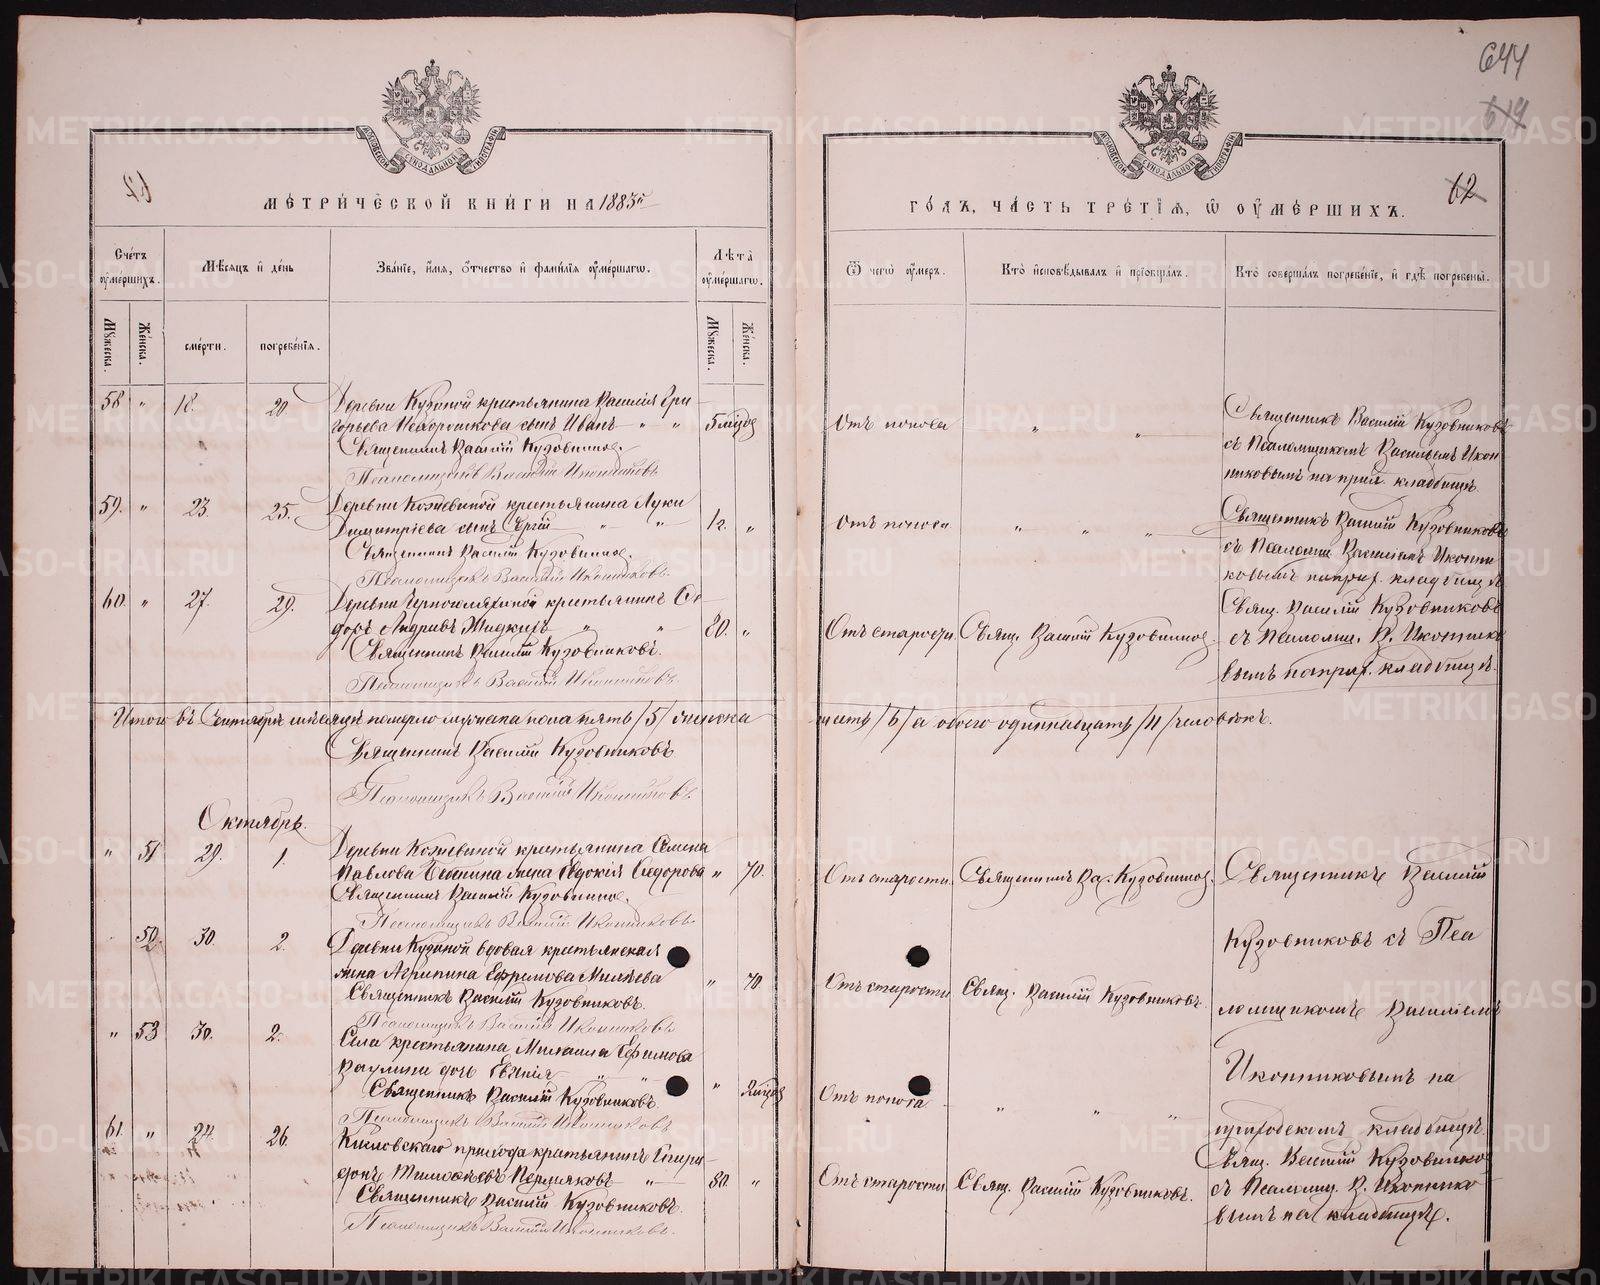 644
619
62
62
МОСКОВСКОЙ СѴНОДАЛЬНОЙ ТИПОГРАФІИ
МОСКОВСКОЙ СѴНОДАЛЬНОЙ ТИПОГРАФІИ
МЕТРИЧЕСКОЙ КНИГИ НА 1883й
ГОДЪ, ЧАСТЬ ТРЕТІЯ, Ѡ ОУМЕРШИХЪ.
Счетъ оумершихъ.
Мѣсяцъ и день
Званіе, имя, отчество и фамилія оумершагѡ.
Лѣта оумершагѡ.
Ѿ чегѡ оумеръ.
Кто исповѣдывалъ и пріобщалъ.
Кто совершалъ погребеніе, и гдѣ погребены.
Мужеска.
Женска.
смерти.
погребенія.
Мужеска.
Женска.
58 " 18. 20
Деревни Кузиной крестьянина Василія Гри
горьева сынъ Иванъ " "
5 мѣцов
Священникъ Василій Кузовниковъ.
Псаломщикъ Василій Иконниковъ
Отъ поноса " "
Священникъ Василій Кузовниковъ
съ Псаломщикомъ Васильемъ Икон
никовымъ на прих. кладбищѣ
59. " 23. 25.
Деревни Кожевиной крестьянина Луки
Димитріева сынъ Сергій " "
1 г. "
Священникъ Василій Кузовников.
Псаломщикъ Василій Иконниковъ.
Отъ поноса " " "
Священникъ Василій Кузовниковъ
съ Псаломщ Василіемъ Иконни
ковымъ на прих. кладбищѣ
60. " 27. 29.
Деревни крестьянинъ Ѳе
доръ
80. "
Священникъ Василій Кузовниковъ.
Псаломщикъ Василій Иконниковъ
Отъ старости
Свящ. Василій Кузовников.
Свящ. Василій Кузовниковъ
съ Псаломщ. В. Иконнико
вымъ на прих. кладбищѣ.
Итого въ Сентябрѣ мѣсяцѣ померло мужска пола пять /5/ женска
шесть /6/ а обоего одиннадцать /11/ человѣкъ.
Священникъ Василій Кузовниковъ
Псаломщикъ Василій Иконниковъ.
Октябрь.
" 51 29. 1.
Деревни Кожевиной крестьянина Семена
Павлова жена Евдокія Ѳедорова
" 70.
Священникъ Василій Кузовников.
Псаломщикъ Василій Иконниковъ.
Отъ старости.
Священникъ Вас. Кузовников.
Священникъ Василій
Кузовниковъ съ Пса
ломщикомъ Василіемъ
Иконниковымъ на
приходскомъ кладбищѣ.
52. 30. 2.
Деревни Кузиной вдовая крестьянская
жена Агрипина Ефримова Миляева
" 70
Священникъ Василій Кузовниковъ.
Псаломщикъ Василій Иконниковъ
Отъ старости
Свящ. Василій Кузовниковъ.
" 53 30. 2.
Села крестьянина Михаила Ефимова
Ваулина дочь Евгенія " "
" 2 мѣцов
Священникъ Василій Кузовниковъ
Псаломщикъ Василій Иконниковъ
Отъ поноса " " "
61. " 24. 26.
Кисловскаго прихода крестьянинъ Спири
донъ Тимоѳеевъ Пермяковъ "
80. "
Священникъ Василій Кузовниковъ.
Псаломщикъ Василій Иконниковъ.
Отъ старости
Свящ. Василій Кузовниковъ.
Свящ. Василій Кузовнико
съ Псаломщ. В. Иконнико
вымъ на кладбищѣ.
METRIKI.GASO-URAL.RU